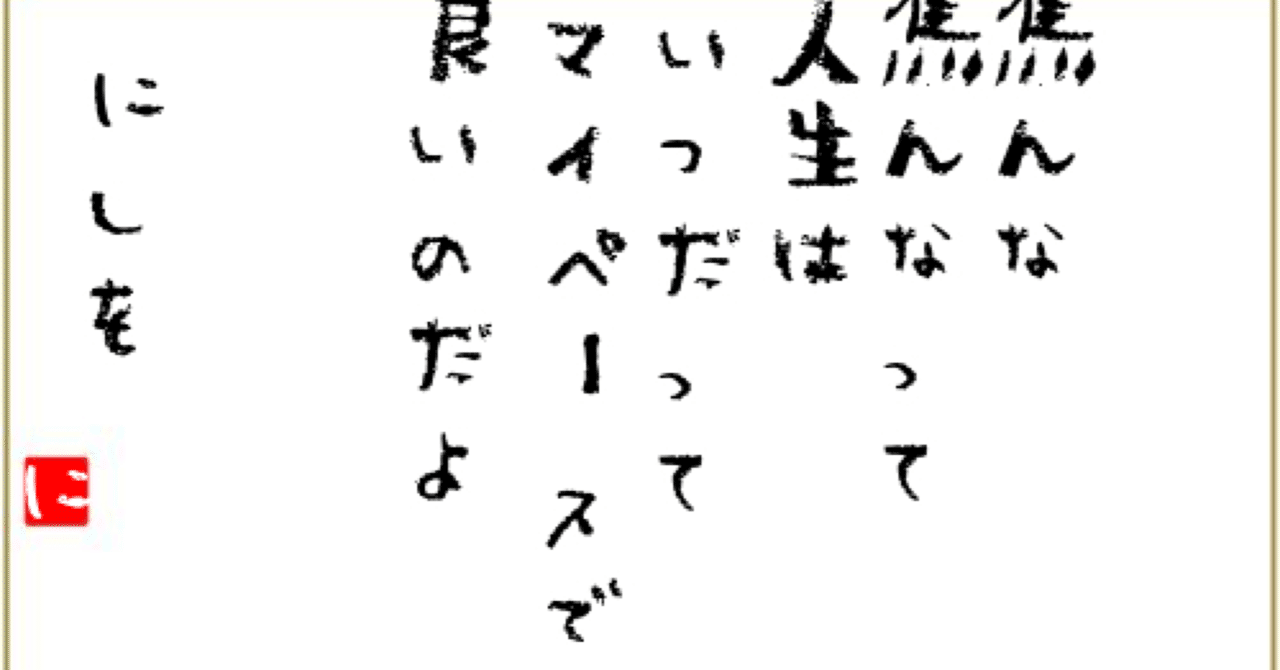 焦んな
焦んなって
人生は
いつだって
マイペースで
良いのだよ
にしを
に